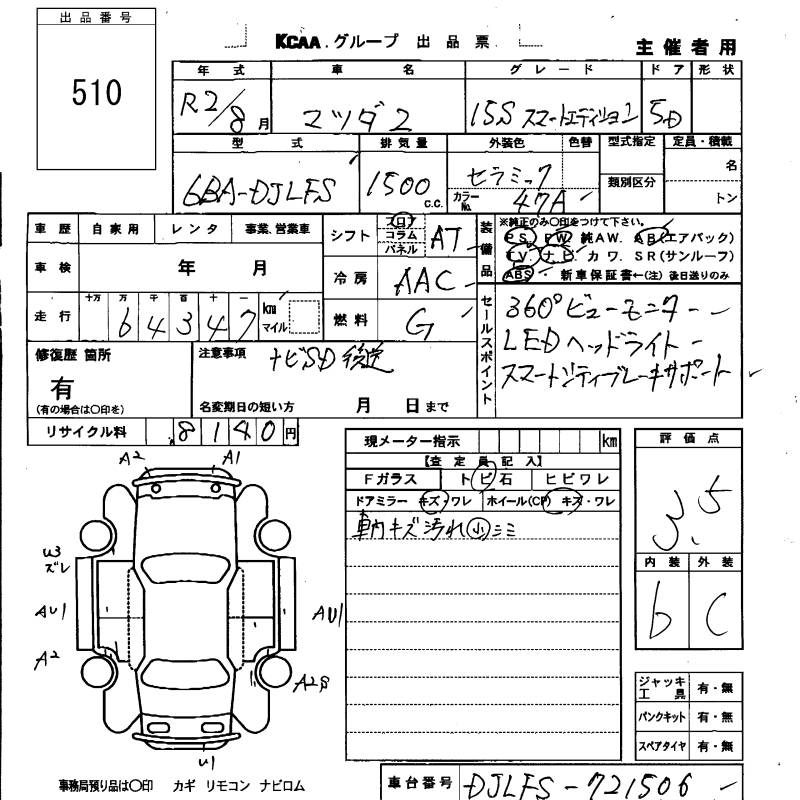 出品番号
510
KCAA.グループ 出品票
主催者用
年式 車名 グレード ドア 形状
R2/8月 マツダ2 15S スマートエディション 5D
型式 排気量 外装色 色替 型式指定 定員・積載
6BA-DJLFS 1500c.c. セラミック 名
カラーNo. 47A 類別区分 トン
車歴 自家用 レンタ 事業、営業車
シフト フロア コラム パネル AT
装備品 ※純正のみ〇印をつけて下さい。
PS. PW. 純AW. AB(エアバック)
TV. ナビ カワ. SR(サンルーフ)
ABS 新車保証書←(注)後日送りのみ
車検 年 月
冷房 AAC
走行 十万 万 千 百 十 一 km マイル
64347
燃料 G
セールスポイント
360°ビューモニター
LEDヘッドライト
スマートシティブレーキサポート
修復歴 箇所
有
(有の場合は〇印を)
注意事項 ナビSD後送
名変期日の短い方 月 日まで
リサイクル料 8140円
現メーター指示 km
【査定員記入】
Fガラス トビ石 ヒビワレ
ドアミラー キズ・ワレ ホイール(CP) キズ・ワレ
車内キズ汚れ小ミミ
評価点
3.5
内装 外装
b C
A2 A1
W3
ズレ
AU1 AU1
A2 A2S
U1
ジャッキ工具 有・無
パンクキット 有・無
スペアタイヤ 有・無
事務局預り品は〇印 カギ リモコン ナビロム
車台番号 DJLFS-721506